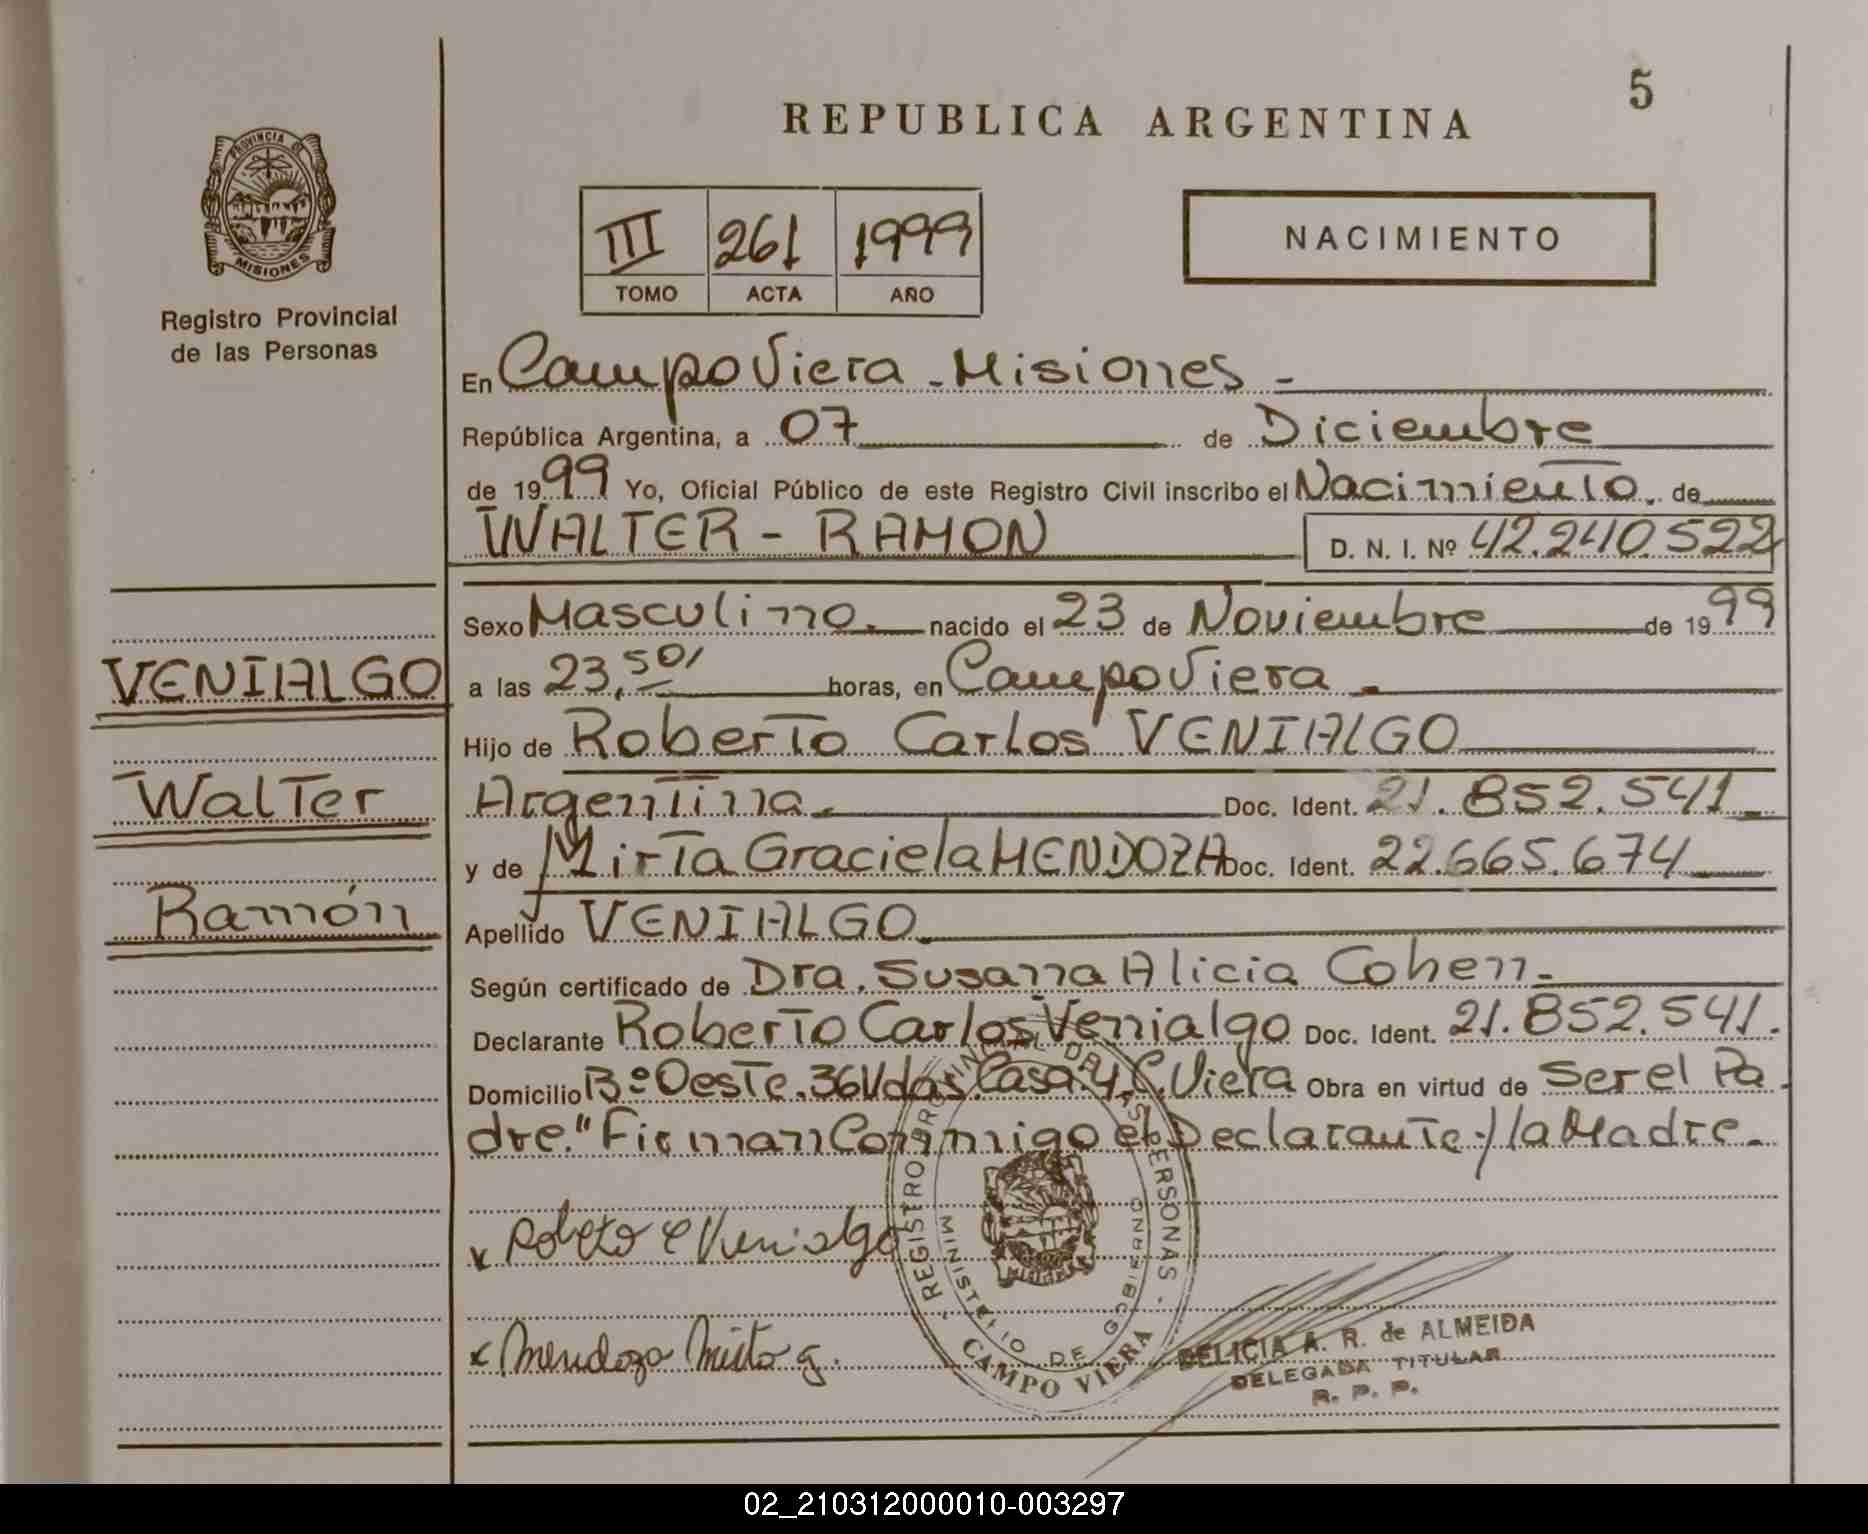 5
REPUBLICA ARGENTINA
PROVINCIA DE
MISIONES
Registro Provincial
de las Personas
III 261 1999
TOMO ACTA AÑO
NACIMIENTO
En Campo Viera - Misiones -
República Argentina, a 07 de Diciembre
de 1999 Yo, Oficial Público de este Registro Civil inscribo el Nacimiento. de
WALTER - RAMON D. N. I. Nº 42.240.522
Sexo Masculino. nacido el 23 de Noviembre de 1999
VENIALGO
a las 23,50' horas, en Campo Viera.
Hijo de Roberto Carlos VENIALGO
Walter
Argentina. Doc. Ident. 21.852.541
y de Mirta Graciela MENDOZA Doc. Ident. 22.665.674
Ramón
Apellido VENIALGO
Según certificado de Dra. Susana Alicia Cohen.
Declarante Roberto Carlos Venialgo Doc. Ident. 21.852.541.
Domicilio Bº Oeste. 36 Vdas. Casa. 4. C. Viera Obra en virtud de Ser el Pa
dre." Firman Conmigo el Declarante y la Madre.
x Roberto C Venialgo
x Mendoza Mirta G.
REGISTRO PROVINCIAL DE LAS PERSONAS -
MINISTERIO DE GOBIERNO
CAMPO VIERA
DELICIA A. R. de ALMEIDA
DELEGADA TITULAR
R. P. P.
02_210312000010-003297